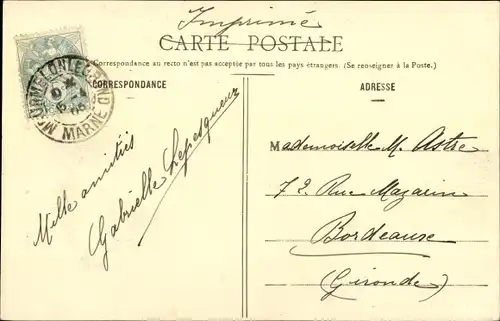 Imprimé
CARTE POSTALE
Correspondance au recto n'est pas acceptée par tous les pays étrangers. (Se renseigner à la Poste.)
CORRESPONDANCE
MOURMELON-LE-GRAND
MARNE
Mille amitiés
Gabrielle Lepesqueux
ADRESSE
Mademoiselle M. Astre
72 Rue Mazarin
Bordeaux
(Gironde)